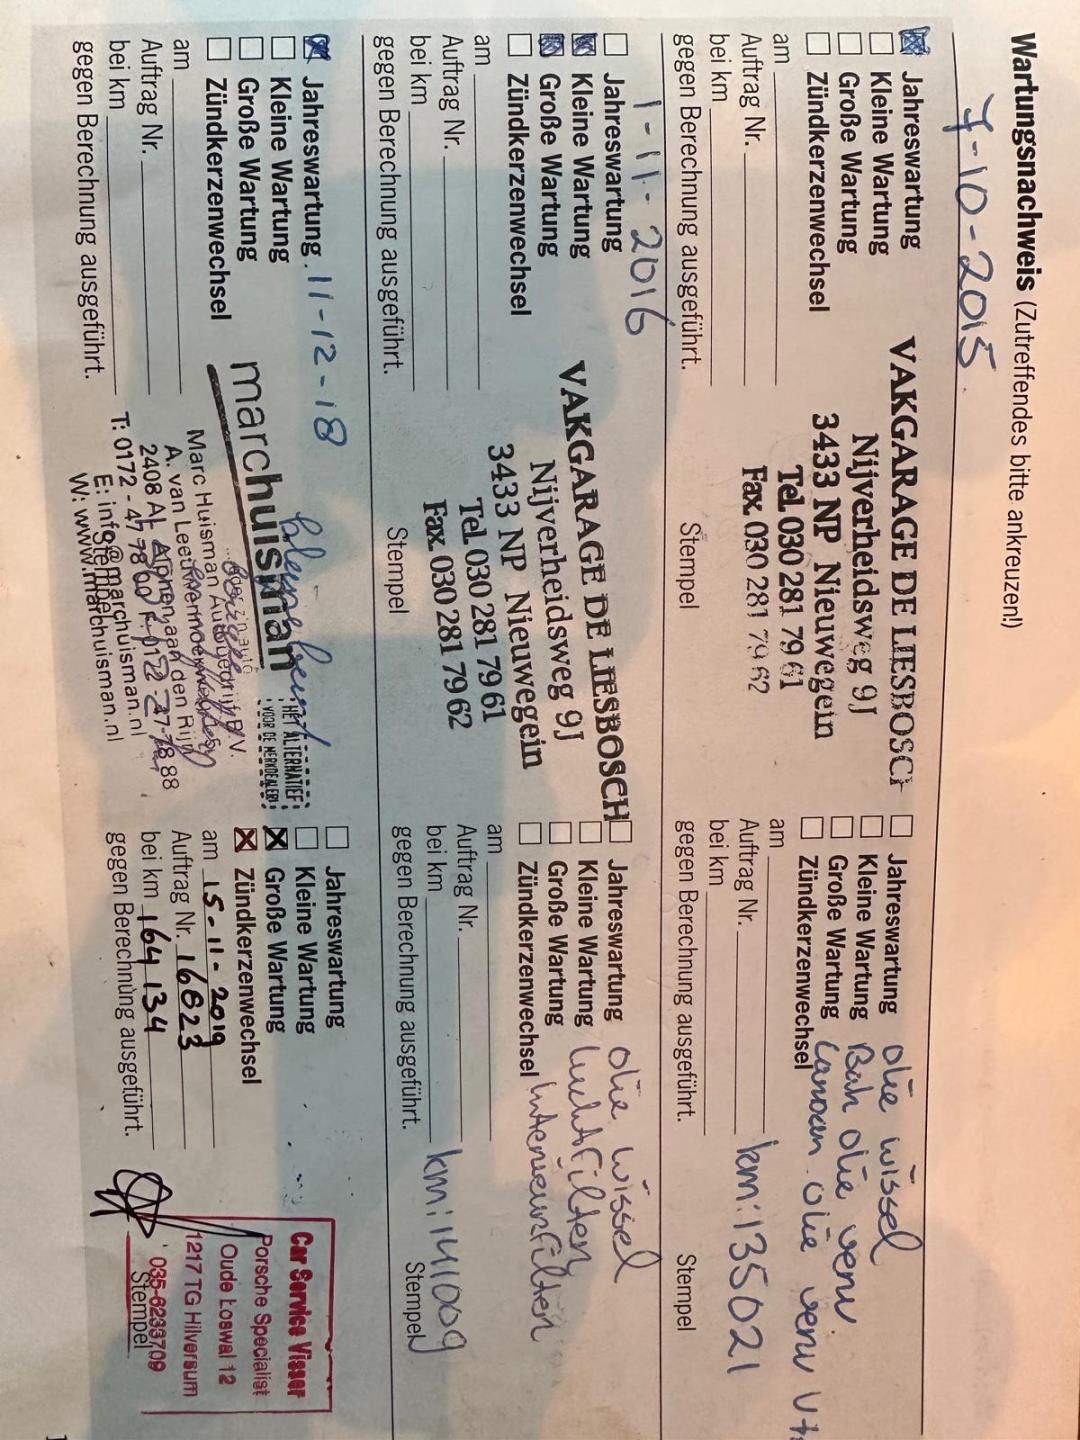 Wartungsnachweis (Zutreffendes bitte ankreuzen!)
7-10-2015.
Jahreswartung
Kleine Wartung
Große Wartung
Zündkerzenwechsel
am
Auftrag Nr.
bei km
gegen Berechnung ausgeführt.
VAKGARAGE DE LIESBOSCH
Nijverheidsweg 9J
3433 NP Nieuwegein
Tel. 030 281 79 61
Fax. 030 281 79 62
Stempel
Jahreswartung olie wissel
Kleine Wartung Bak olie verv
Große Wartung Cardan olie verv
Zündkerzenwechsel
am
Auftrag Nr.
km: 135021
bei km
gegen Berechnung ausgeführt.
Stempel
1-11-2016
Jahreswartung
Kleine Wartung
Große Wartung
Zündkerzenwechsel
am
Auftrag Nr.
bei km
gegen Berechnung ausgeführt.
VAKGARAGE DE LIESBOSCH
Nijverheidsweg 9J
3433 NP Nieuwegein
Tel. 030 281 79 61
Fax. 030 281 79 62
Stempel
Jahreswartung olie wissel
Kleine Wartung luchtfilter
Große Wartung
Zündkerzenwechsel Interieurfilter
am
Auftrag Nr.
bei km km: 141009
gegen Berechnung ausgeführt.
Stempel
Jahreswartung 11-12-18
Kleine Wartung
Große Wartung
Zündkerzenwechsel
am
Auftrag Nr.
bei km
gegen Berechnung ausgeführt.
kleine beurt
marchuisman
HET ALTERNATIEF
VOOR DE MERKDEALER!
Marc Huisman Autobedrijf B.V.
A. van Leeuwenhoekweg
2408 AL Alphen aan den Rijn
T: 0172 - 47 78 00 F: 0172 - 47 78 88
E: info@marchuisman.nl
W: www.marchuisman.nl
Stempel
Jahreswartung
Kleine Wartung
Große Wartung
Zündkerzenwechsel
am 15-11-2019
Auftrag Nr. 16823
bei km 164134
gegen Berechnung ausgeführt.
Car Service Visser
Porsche Specialist
Oude Loswal 12
1217 TG Hilversum
035-6233709
Stempel